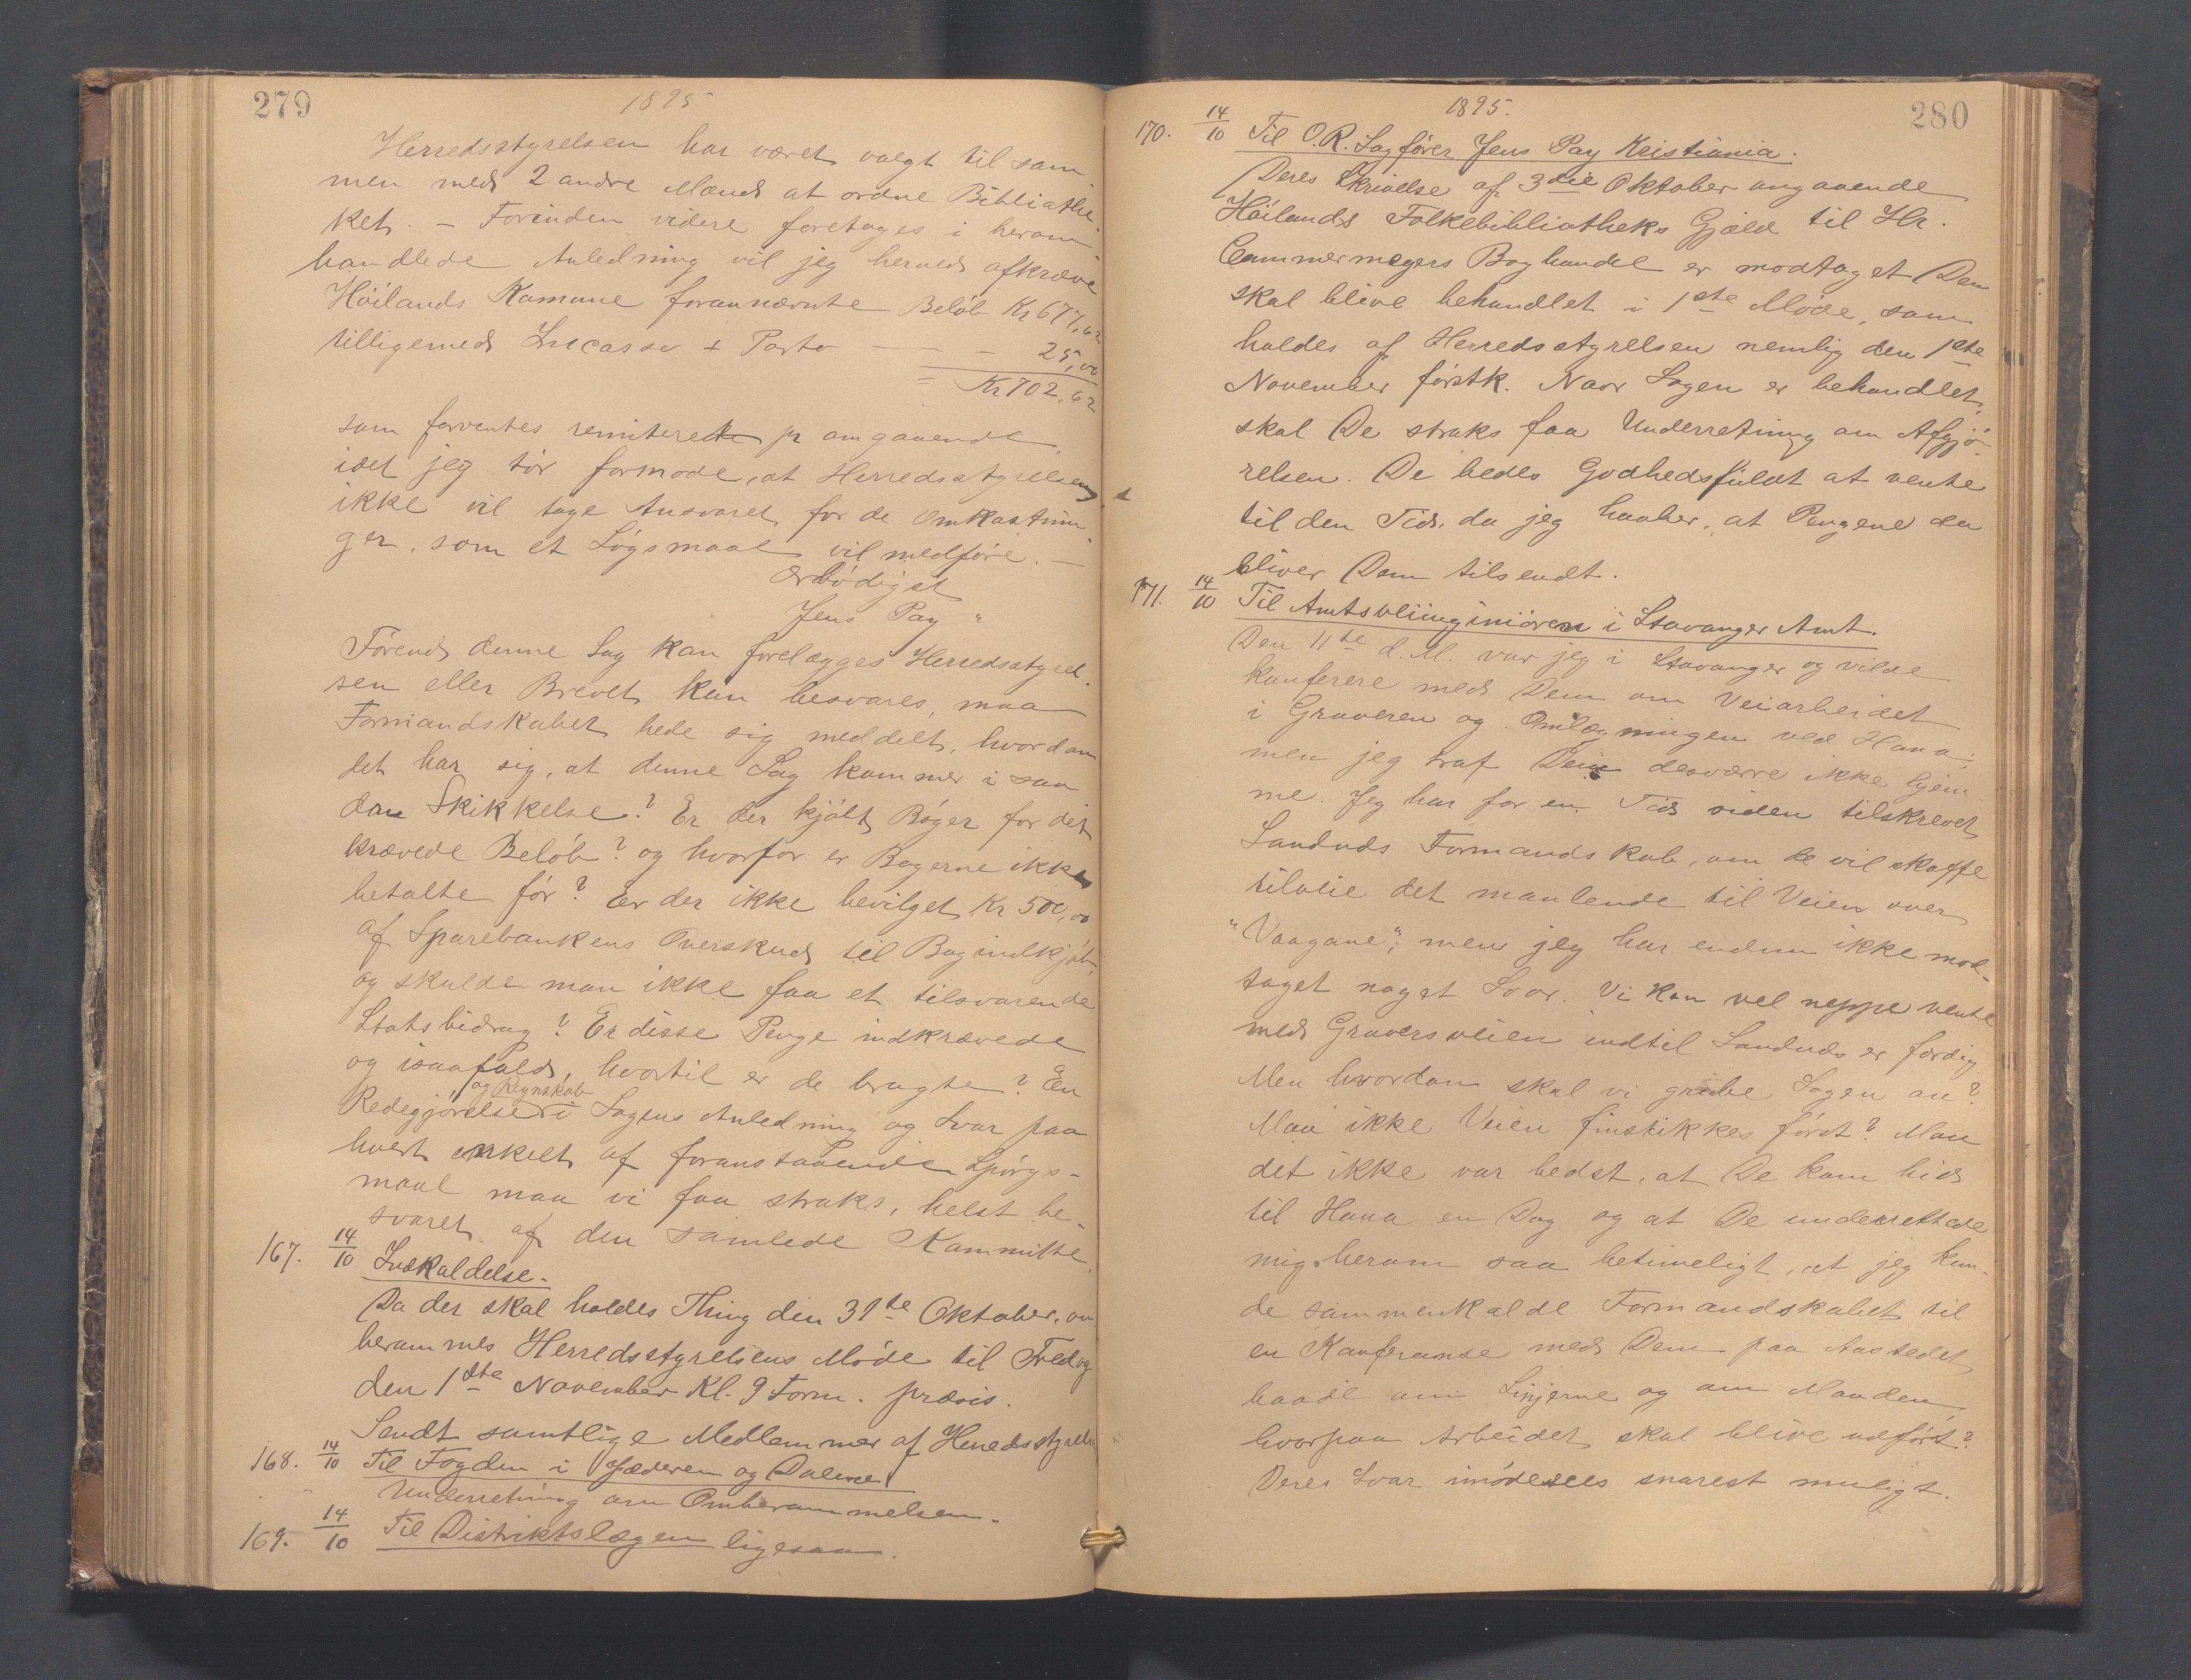 279
1895
Herredsstyrelsen har været valgt til sam
men med 2 andre Mænd at ordne Bibliothe
ket. – Forinden videre foretages i herom
handlede Anledning vil jeg herved afkræve
Höilands Komune forannævnte Beløb Kr 677,62
tilligemed Incasso + Porto — – 25,00
= Kr 702,62
som forventes remiterede pr omgaaende,
idet jeg tör formode, at Herredsstyrelsen
ikke vil tage Ansvaret for de Omkostnin
ger, som et Lögsmaal vil medföre. —
Ærbödigst
Jens Pay "
Förend denne Sag kan forelægges Herredsstyrel
sen eller Brevet kan besvares, maa
Formandskabet bede sig meddelt, hvordan
det har sig, at denne Sag kommer i saa
dan Skikkelse? Er der kjöbt Böger for det
krævede Belöb? og hvorfor er Bogerne ikke
betalte för? Er der ikke bevilget Kr 500,00
af Sparebankens Overskud til Bogindkjöb,
og skulde man ikke faa et tilsvarende
Statsbidrag? Er disse Penge indkrævede
og isaafald, hvortil er de brugte? En
og Regnskab
Redegjörelse i Sagens Anledning og Svar paa
hvert enkelt af foranstaaende Spörgs-
maal maa vi faa straks, helst be-
svaret af den samlede Kommitte.
167. 14/10 Indkaldelse.
Da der skal holdes Thing den 31te Oktober, om
berammes Herredsstyrelsens Möde til Fredag
den 1ste November Kl. 9 Form. præsis.
Sendt samtlige Medlemmer af Herredsstyrelsen
168. 14/10 Til Fogden i Jæderen og Dalene
Underretning om Omberammelsen.
169. 14/10 Til Distriktslægen ligesaa.
1895.
280
170. 14/10 Til O.R. Sagförer Jens Pay Kristiania.
Deres Skrivelse af 3die Oktober angaaende
Höilands Folkebibliotheks Gjæld til Hr.
Cammermeyers Boghandel er modtaget Den
skal blive behandlet i 1ste Möde, som
holdes af Herredsstyrelsen nemlig den 1ste
November förstk. Naar Sagen er behandlet,
skal De straks faa Underretning om Afgjö-
relsen. De bedes Godhedsfuldt at vente
til den Tid, da jeg haaber, at Pengene da
bliver Dem tilsendt.
171. 14/10 Til Amtsveiinginiören i Stavanger Amt.
Den 11te d.M. var jeg i Stavanger og vilde
konferere med Dem om Veiarbeidet
i Graveren og Omlægningen ved Hana,
men jeg traf Dem desværre ikke hjem
me. Jeg har for en Tid siden tilskrevet
Sandnds Formandskab, om de vil skaffe
tilveie det manlende til Veien over
"Vaagane"; men jeg har endnu ikke mod-
taget noget Svar. Vi kan vel neppe vente
med Graversveien indtil Sandnds er færdig
Men hvordan skal vi gribe Sagen an?
Maa ikke Veien finstikkes först? Mon
det ikke var bedst, at De kom hid
til Hana en Dag og at De underrettede
mig herom saa betimeligt, at jeg kun-
de sammenkalde Formandskabet til
en Konferanse med Dem paa Aastedet,
baade om Linjerne og om Maaden,
hvorpaa Arbeidet skal blive udfört?
Deres Svar imödesees snarest muligt.